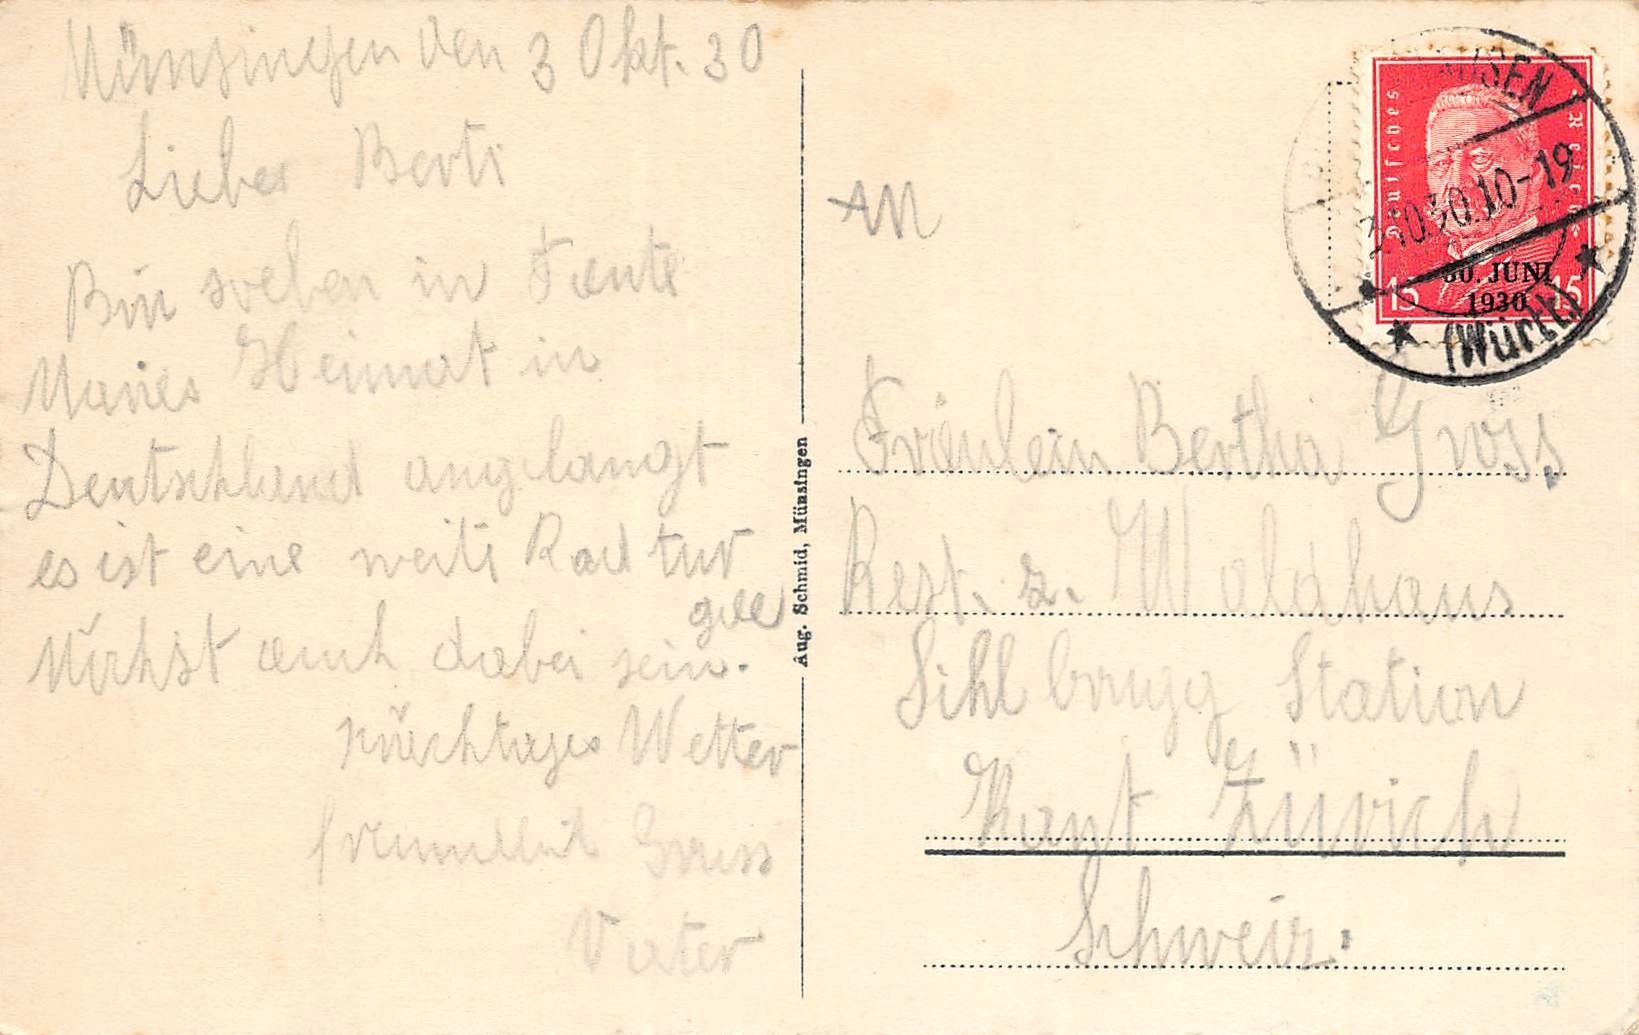 Münsingen den 3 Okt. 30
Liebes Berti
Bin soeben in Tante
Maries Heimat in
Deutschland angelangt
es ist eine weite Rad tur
gell
Möchst auch dabei sein.
prächtiges Wetter
freundlich Gruss
Vater
Aug. Schmid, Münsingen
AN
Fräulein Bertha Gross
Rest. z. Waldhaus
Sihlbrugg Station
Kant Zürich
Schweiz.
Deutsches Reich
15 15
30. JUNI
1930
AUSEN
3.10.30.10-
(Württ.)